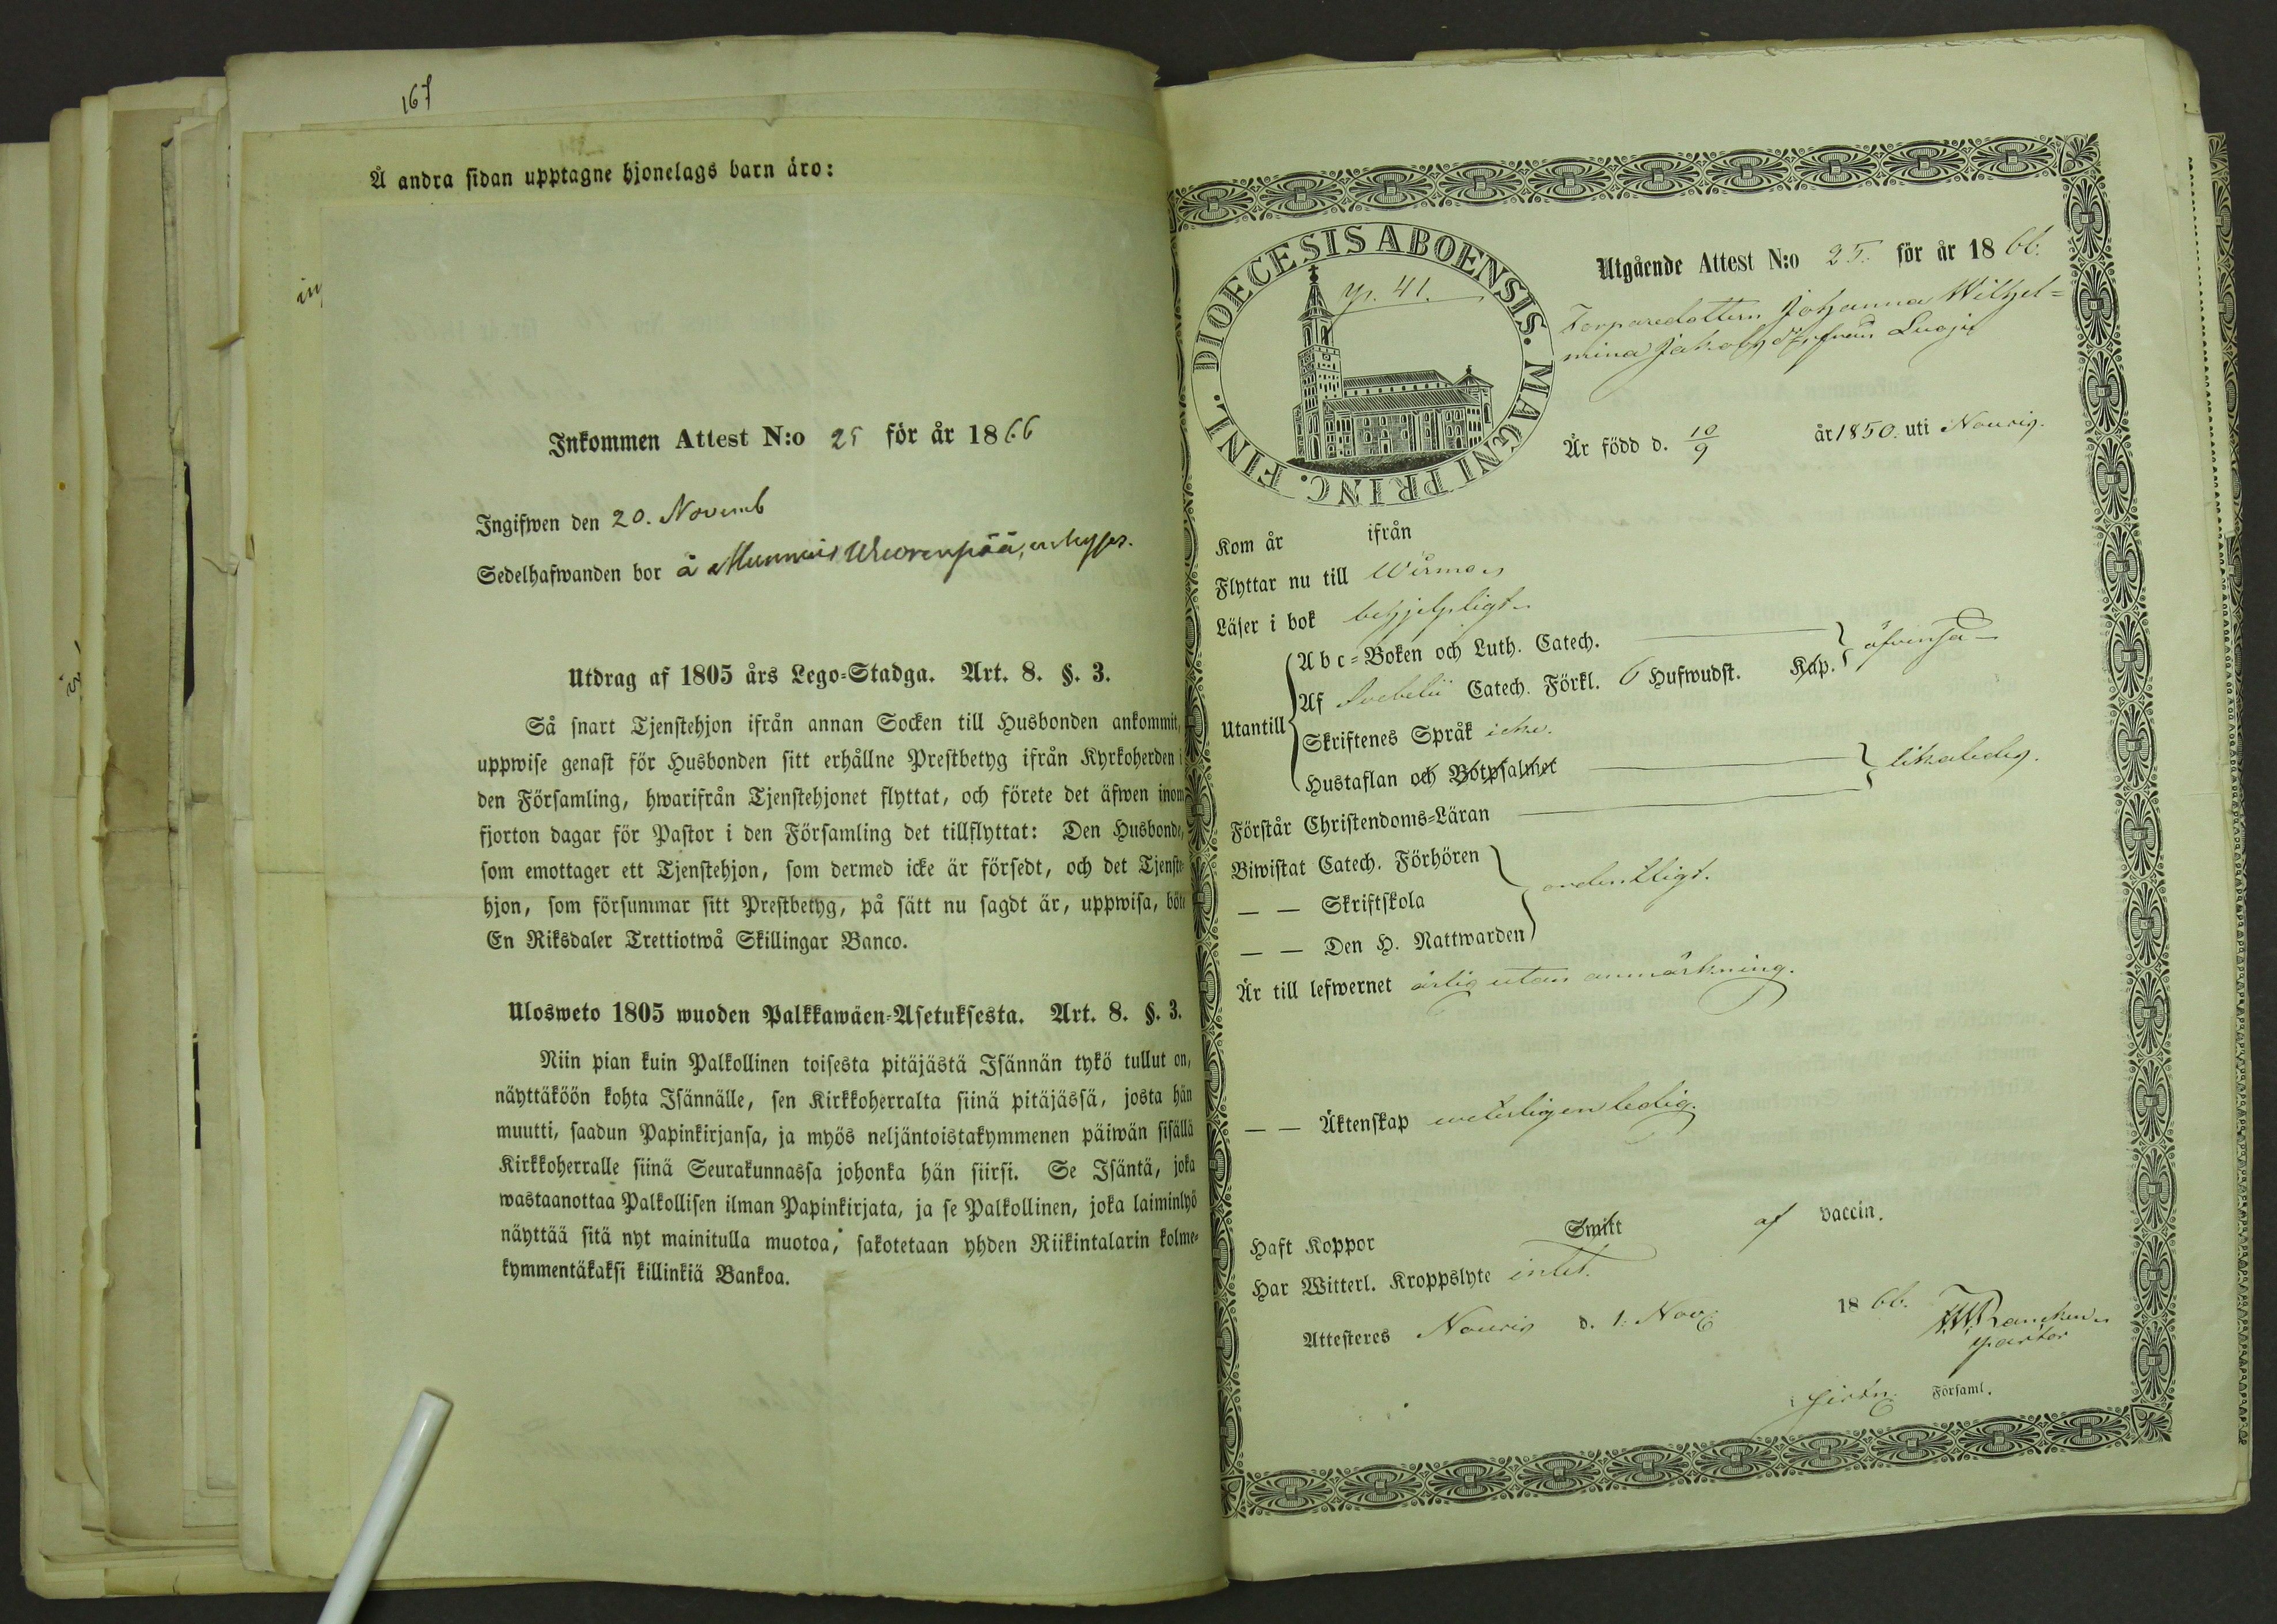 167
Å andra sidan upptagne hjonelags barn äro:
Inkommen Attest N:o 25 för år 1866
Ingifwen den 20. Novemb
Sedelhafwanden bor å Munnais Wuorenpää, inhyses.
Utdrag af 1805 års Lego-Stadga. Art. 8. §. 3.
Så snart Tjenstehjon ifrån annan Socken till Husbonden ankommit,
uppwise genast för Husbonden sitt erhållne Prestbetyg ifrån Kyrkoherden i
den Församling, hwarifrån Tjenstehjonet flyttat, och förete det äfwen inom
fjorton dagar för Pastor i den Församling det tillflyttat: Den Husbonde,
som emottager ett Tjenstehjon, som dermed icke är försedt, och det Tjenste-
hjon, som försummar sitt Prestbetyg, på sätt nu sagdt är, uppwisa, böte
En Riksdaler Trettiotwå Skillingar Banco.
Ulosweto 1805 wuoden Palkkawäen-Asetuksesta. Art. 8. §. 3.
Niin pian kuin Palkollinen toisesta pitäjästä Isännän tykö tullut on,
näyttäköön kohta Isännälle, sen Kirkkoherralta siinä pitäjässä, josta hän
muutti, saadun Papinkirjansa, ja myös neljäntoistakymmenen päiwän sisällä
Kirkkoherralle siinä Seurakunnassa johonka hän siirsi. Se Isäntä, joka
wastaanottaa Palkollisen ilman Papinkirjata, ja se Palkollinen, joka laiminlyö
näyttää sitä nyt mainitulla muotoa, sakotetaan yhden Riikintalarin kolme-
kymmentäkaksi killinkiä Bankoa.
DIOECESIS ABOENSIS. MAGNI PRINC. FINL.
p. 41.
Utgående Attest N:o 25. för år 1866.
Torparedottern Johanna Wilhel=
mina Jakobsdr, från
Är född d. 10/9 år 1850. uti Nousis.
Kom år ifrån
Flyttar nu till Wirmo,
Läser i bok behjelpligt.
Utantill
Abc-Boken och Luth. Catech.
Af Svebelii Catech. Förkl. 6 Hufwudst. Kap. äfvenså
Skriftenes Språk icke.
Hustaflan och Botpsalmet
Förstår Christendoms-Läran likaledes.
Biwistat Catech. Förhören
— — Skriftskola ordentligt.
— — Den H. Nattwarden
Är till lefwernet ärlig utan anmärkning.
— — Äktenskap veterligen ledig.
Haft Koppor Smitt af vaccin.
Har Witterl. Kroppslyte intet.
Attesteres Nousis d. 1. Nov. 1866.
pastor
Församl.